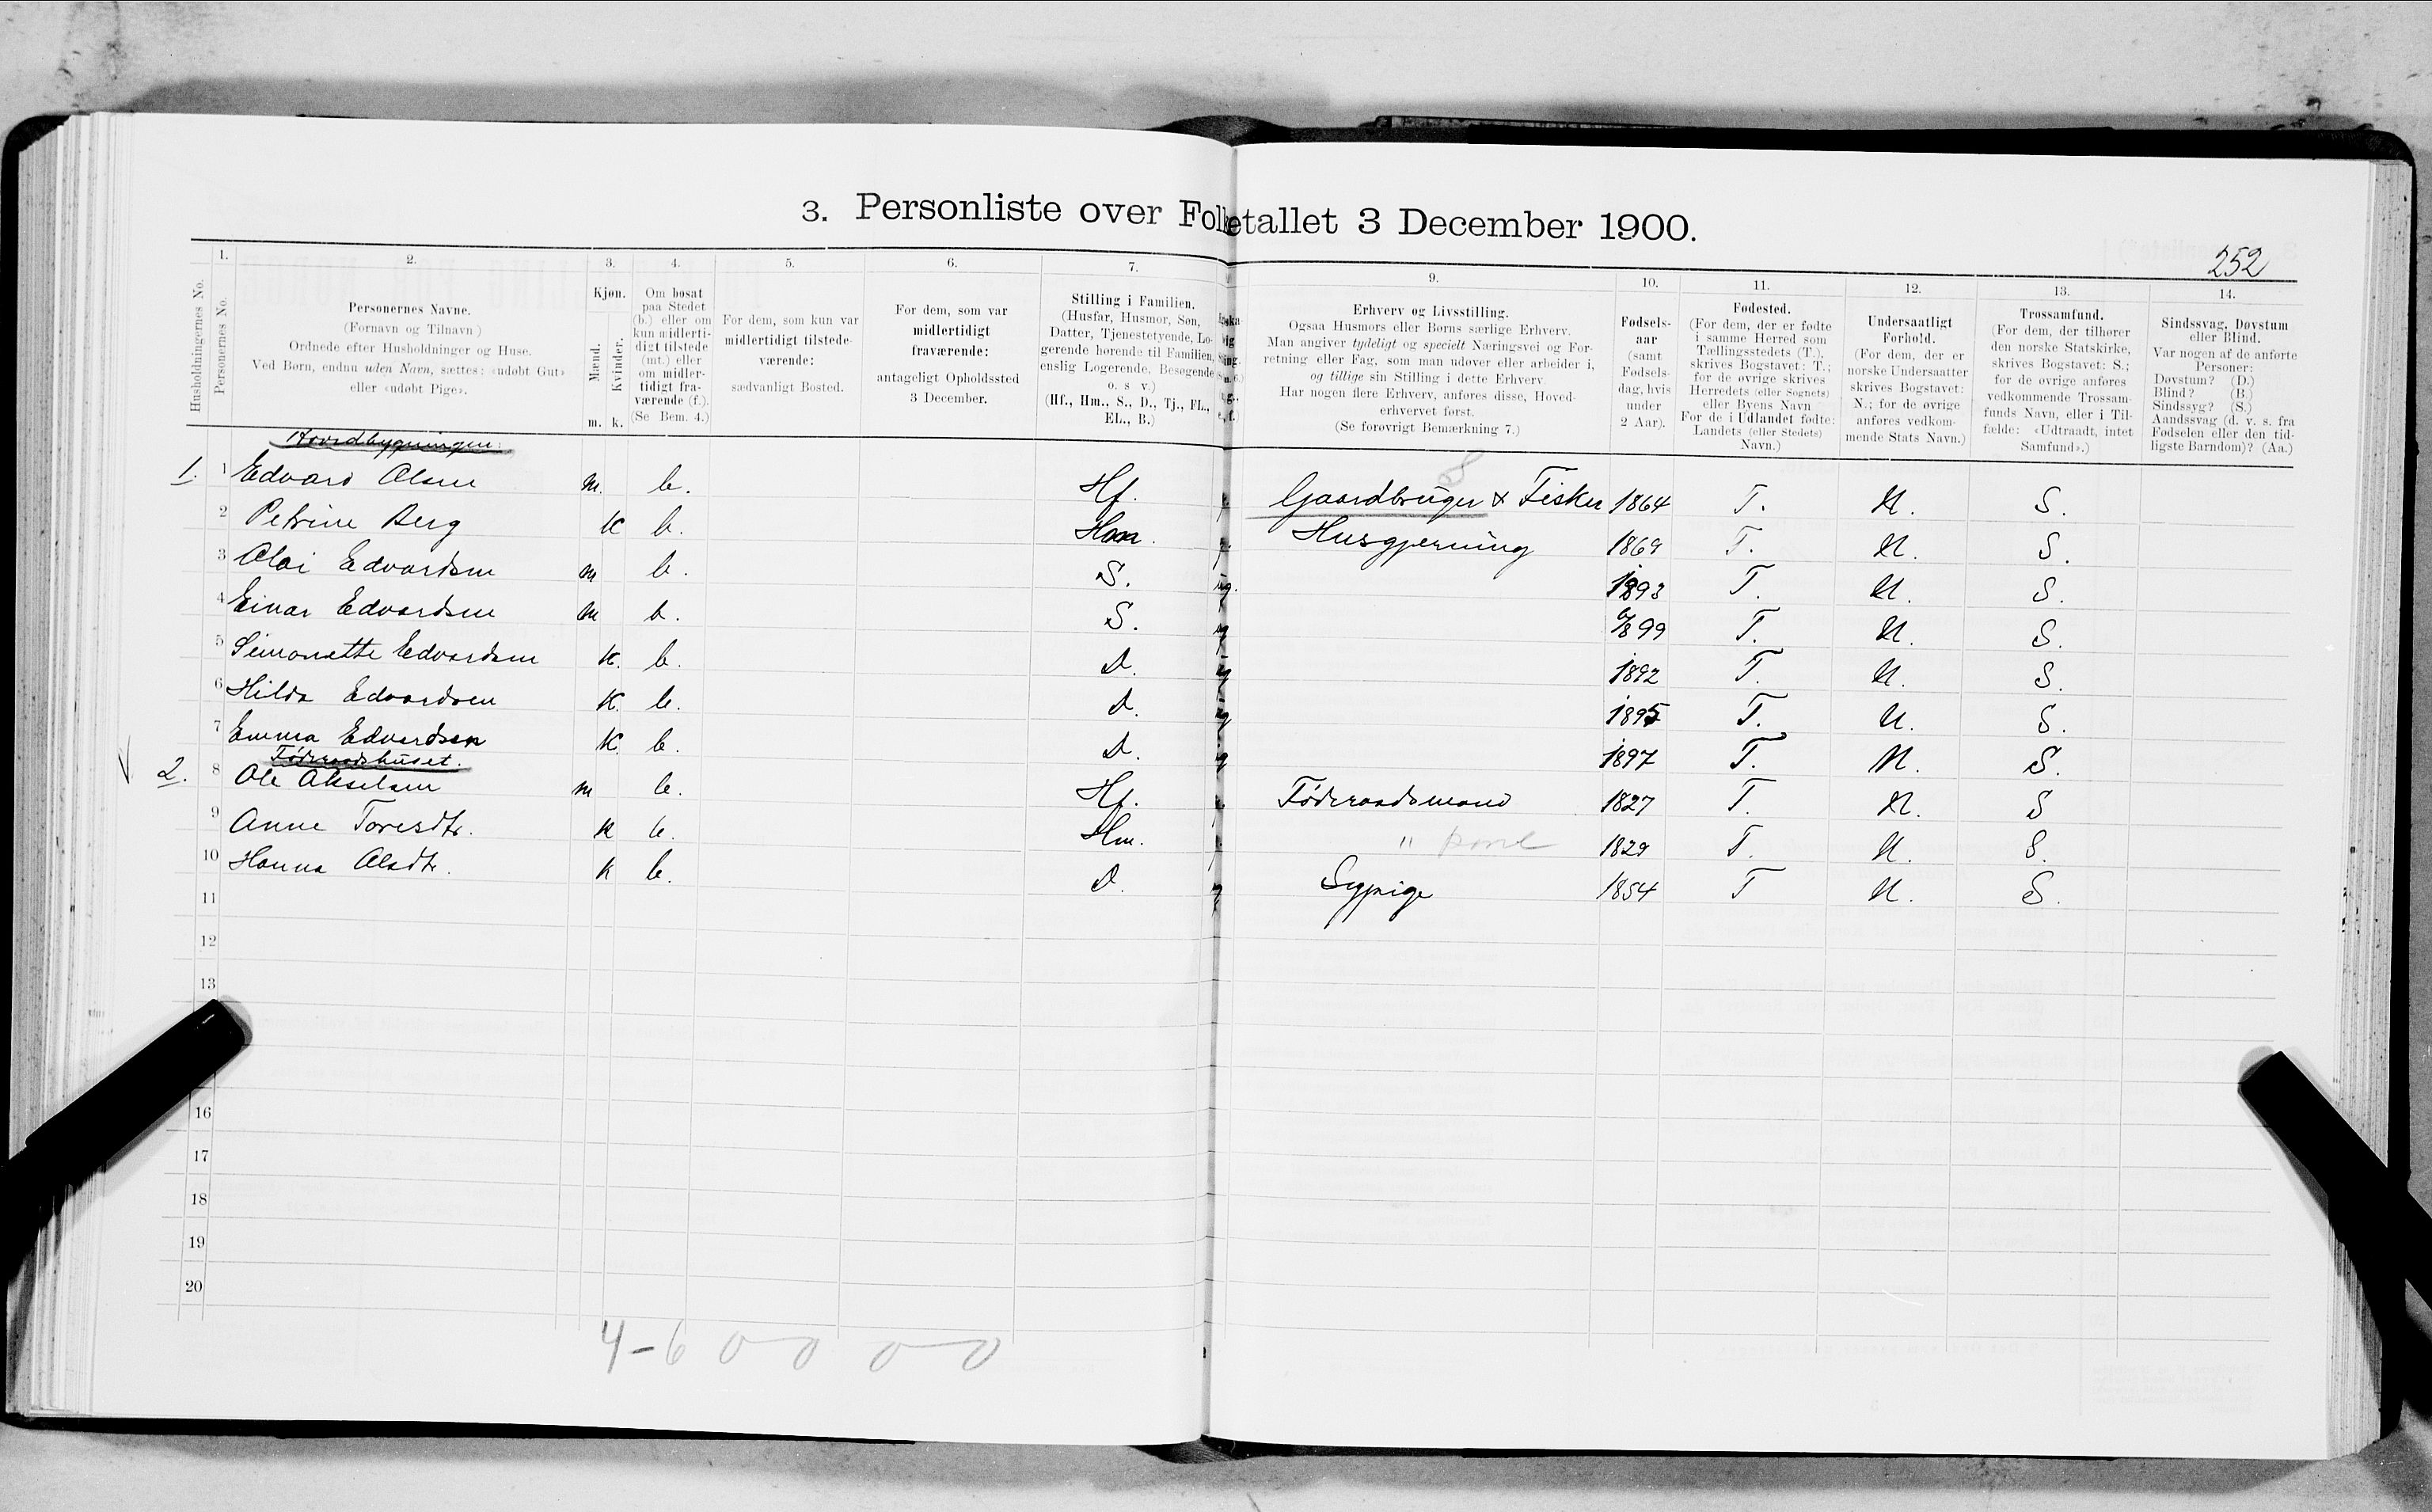 3. Personliste over Folketallet 3 December 1900.
252
Husholdningernes No.
1.
Personernes No.
2.
Personernes Navne.
(Fornavn og Tilnavn)
Ordnede efter Husholdninger og Huse.
Ved Børn, endnu uden Navn, sættes: «udøbt Gut»
eller «udøbt Pige».
3.
Kjøn.
Mænd.
Kvinder.
m. k.
4.
Om bosat
paa Stedet
(b.) eller om
kun midlerti-
digt tilstede
(mt.) eller
om midler-
tidigt fra-
værende (f.).
(Se Bem. 4.)
5.
For dem, som kun var
midlertidigt tilstede-
værende:
sædvanligt Bosted.
6.
For dem, som var
midlertidigt
fraværende:
antageligt Opholdssted
3 December.
7.
Stilling i Familien.
(Husfar, Husmor, Søn,
Datter, Tjenestetyende, Lo-
gerende hørende til Familien,
enslig Logerende, Besøgende
o. s v.)
(Hf., Hm., S., D., Tj., FL.,
EL., B.)
9.
Erhverv og Livsstilling.
Ogsaa Husmors eller Børns særlige Erhverv.
Man angiver tydeligt og specielt Næringsvei og For-
retning eller Fag, som man udøver eller arbeider i,
og tillige sin Stilling i dette Erhverv.
Har nogen flere Erhverv, anføres disse, Hoved-
erhvervet først.
(Se forøvrigt Bemærkning 7.)
10.
Fødsels-
aar
(samt
Fødsels-
dag, hvis
under
2 Aar).
11.
Fødested.
(For dem, der er fødte
i samme Herred som
Tællingsstedets (T.),
skrives Bogstavet: T.;
for de øvrige skrives
Herredets (eller Sognets)
eller Byens Navn
For de i Udlandet fødte:
Landets (eller Stedets)
Navn.)
12.
Undersaatligt
Forhold.
(For dem, der er
norske Undersaatter
skrives Bogstavet:
N.; for de øvrige
anføres vedkom-
mende Stats Navn.)
13.
Trossamfund.
(For dem, der tilhører
den norske Statskirke,
skrives Bogstavet: S.;
for de øvrige anføres
vedkommende Trossam-
funds Navn, eller i Til-
fælde: «Udtraadt, intet
Samfund».)
14.
Sindssvag, Døvstum
eller Blind.
Var nogen af de anførte
Personer:
Døvstum? (D.)
Blind? (B.)
Sindssyg? (S.)
Aandssvag (d. v. s. fra
Fødselen eller den tid-
ligste Barndom)? (Aa.)
Hovedbygningen.
8
1. 1 Edvard Olsen m. b. Hf. Gaardbruger & Fisker 1864 T. N. S.
2 Petrine Berg K b. Hm. Husgjerning 1869 T. N. S.
3 Olai Edvardsen m b. S. ug. 1893 T. N. S.
4 Einar Edvardsen m b. S. ug 99 T. N. S.
5 Simonette Edvardsen K. b. D. ug 1892 T. N. S.
6 Hilda Edvardsen K. b. D. ug 1895 T. N. S.
7 Emma Edvardsen K. b. D. ug 1897 T. N. S.
Føderaadshuset.
2. 8 Ole Akselsen m b. Hf. Føderaadsmand 1827 T. N. S
9 Anne Toresdtr. K b. Hm. " kone 1829 T. N. S.
10 Hanna Olsdtr. K b. D. Sypige 1854 T N. S.
11
12
13
16
17
18
19
20
4-6 0 0 0-0